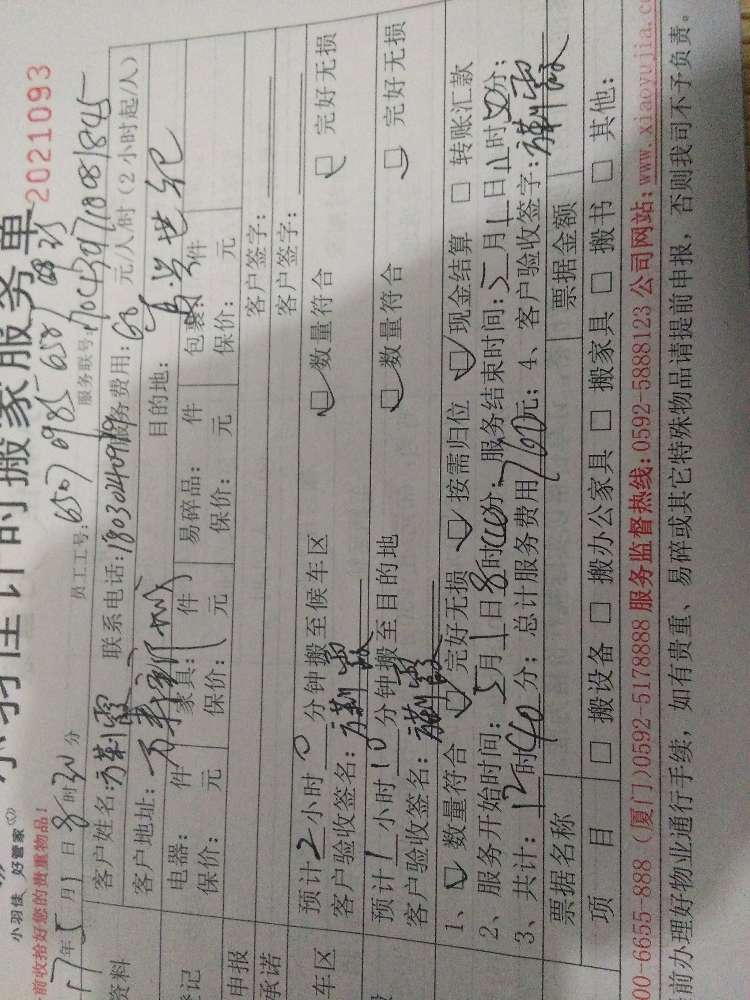 小羽佳 好管家
小羽佳计时搬家服务单 2021093
前收拾好您的贵重物品!
17年5月1日8时30分 员工工号: 6507 0985 6507 服务联号:
客户姓名: 联系电话: 服务费用:60 元/人/时(2小时起/人)
客户地址: 目的地: 世纪
电器: 件 家具: 件 易碎品: 件 包裹: 件
保价: 元 保价: 元 保价: 元 保价: 元
申报 客户签字:
承诺 客户签字:
车区 预计2小时0分钟搬至候车区 数量符合 完好无损
客户验收签名:
预计1小时10分钟搬至目的地 数量符合 完好无损
客户验收签名:
1、 数量符合 完好无损 按需归位 现金结算 □ 转账汇款
2、服务开始时间:5月1日8时40分;服务结束时间:5月1日11时50分;
3、共计:12时40分;总计服务费用760元;4、客户验收签字:
票据名称 票据金额
项 目 □ 搬设备 □ 搬办公家具 □ 搬家具 □ 搬书 □ 其他:
00-6655-888 (厦门)0592-5178888 服务监督热线:0592-5888123 公司网站:www.xiaoyujia.c
前办理好物业通行手续,如有贵重、易碎或其它特殊物品请提前申报,否则我司不予负责。